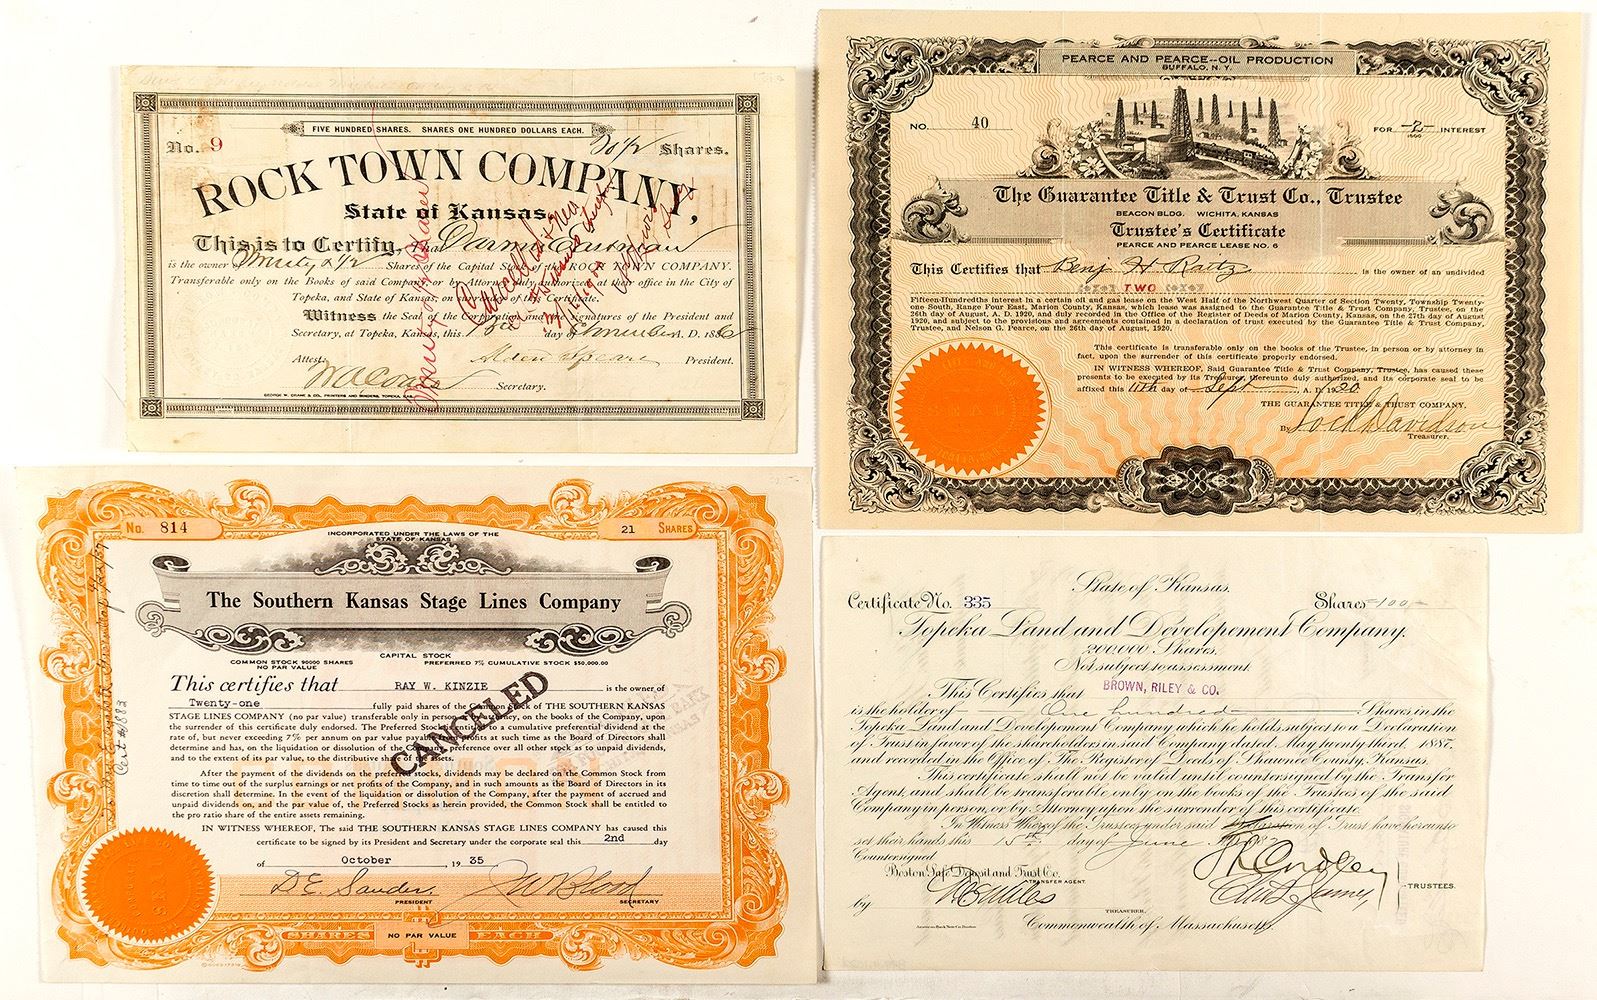 FIVE HUNDRED SHARES. SHARES ONE HUNDRED DOLLARS EACH.
No. 9
20 1/2 Shares.
ROCK TOWN COMPANY,
State of Kansas.
This is to Certify, That
is the owner of Shares of the Capital Stock of the ROCK TOWN COMPANY.
Transferable only on the Books of said Company or by Attorney duly authorized, at their office in the City of
Topeka, and State of Kansas, on surrender of this Certificate.
Witness the Seal of the Corporation and the signatures of the President and
Secretary, at Topeka, Kansas, this day of A. D. 188
Attest, President.
Secretary.
GEORGE W. CRANE & CO. PRINTERS AND BINDERS, TOPEKA, KAS.
PEARCE AND PEARCE--OIL PRODUCTION
BUFFALO, N. Y.
NO. 40
FOR -2- INTEREST
1500
The Guarantee Title & Trust Co., Trustee
BEACON BLDG. WICHITA, KANSAS
Trustee's Certificate
PEARCE AND PEARCE LEASE NO. 6
This Certifies that Benj H Raitz is the owner of an undivided
TWO
Fifteen-Hundredths interest in a certain oil and gas lease on the West Half of the Northwest Quarter of Section Twenty, Township Twenty-
one South, Range Four East, Marion County, Kansas, which lease was assigned to the Guarantee Title & Trust Company, Trustee, on the
26th day of August, A. D. 1920, and duly recorded in the Office of the Register of Deeds of Marion County, Kansas, on the 27th day of August
1920, and subject to the provisions and agreements contained in a declaration of trust executed by the Guarantee Title & Trust Company,
Trustee, and Nelson G. Pearce, on the 26th day of August, 1920.
This certificate is transferable only on the books of the Trustee, in person or by attorney in
fact, upon the surrender of this certificate properly endorsed.
IN WITNESS WHEREOF, Said Guarantee Title & Trust Company, Trustee, has caused these
presents to be executed by its Treasurer, thereunto duly authorized, and its corporate seal to be
affixed this 11th day of Sept A. D. 1920
THE GUARANTEE TITLE & TRUST COMPANY,
By
Treasurer.
No. 814
INCORPORATED UNDER THE LAWS OF THE
STATE OF KANSAS
21 SHARES
The Southern Kansas Stage Lines Company
CAPITAL STOCK
COMMON STOCK 90000 SHARES PREFERRED 7% CUMULATIVE STOCK $50,000.00
NO PAR VALUE
This certifies that RAY W. KINZIE is the owner of
Twenty-one fully paid shares of the Common Stock of THE SOUTHERN KANSAS
STAGE LINES COMPANY (no par value) transferable only in person or by attorney, on the books of the Company, upon
the surrender of this certificate duly endorsed. The Preferred Stock is entitled to a cumulative preferential dividend at the
rate of, but never exceeding 7% per annum on par value payable from profits at such time as the Board of Directors shall
determine and has, on the liquidation or dissolution of the Company, preference over all other stock as to unpaid dividends,
and to the extent of its par value, to the distributive share of the assets.
After the payment of the dividends on the preferred stocks, dividends may be declared on the Common Stock from
time to time out of the surplus earnings or net profits of the Company, and in such amounts as the Board of Directors in its
discretion shall determine. In the event of the liquidation or dissolution of the Company, after the payment of accrued and
unpaid dividends on, and the par value of, the Preferred Stocks as herein provided, the Common Stock shall be entitled to
the pro ratio share of the entire assets remaining.
IN WITNESS WHEREOF, The said THE SOUTHERN KANSAS STAGE LINES COMPANY has caused this
certificate to be signed by its President and Secretary under the corporate seal this 2nd day
of October, 1935
PRESIDENT SECRETARY
CANCELED
SHARES NO PAR VALUE EACH
State of Kansas.
Certificate No. 335
Shares -100-
Topeka Land and Development Company.
200000 Shares.
Not subject to assessment.
This Certifies that BROWN, RILEY & CO.
is the holder of One hundred Shares in the
Topeka Land and Development Company which he holds subject to a Declaration
of Trust in favor of the shareholders in said Company dated, May twenty third, 1887,
and recorded in the Office of The Register of Deeds of Shawnee County, Kansas.
This certificate shall not be valid until countersigned by the Transfer
Agent, and shall be transferable only on the books of the Trustees of the said
Company in person, or by Attorney upon the surrender of this certificate.
In Witness Whereof the Trustees under said Declaration of Trust have hereunto
set their hands this 15th day of June
Countersigned
Boston Safe Deposit and Trust Co.
TRANSFER AGENT.
TRUSTEES.
by
TREASURER.
Commonwealth of Massachusetts.